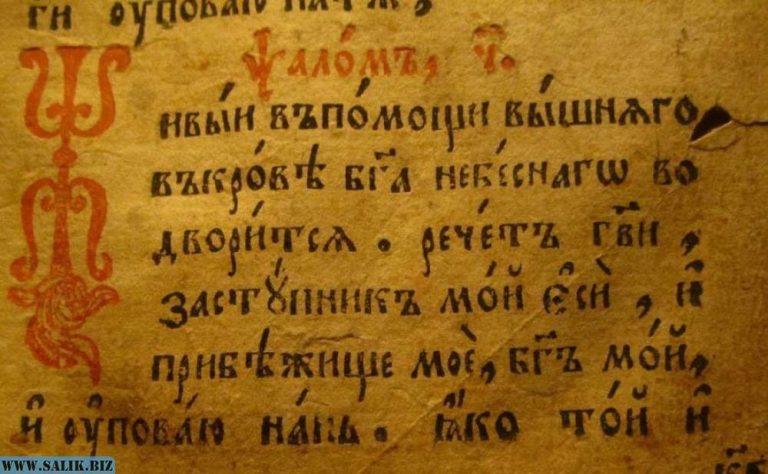 ги оуповаю на тѧ,
Ѱало́мъ, ч҃.
Живы́и въпо́мощи вы́шнѧго
въкро́вѣ бг҃а небе́снагѡ во
двори́тсѧ . рече́тъ гв҃и ,
застꙋ́пникъ мо́й є҆сѝ , и҆
прибѣ́жище моѐ, бг҃ъ мо́й,
и҆ оу҆пова́ю на́нь . ꙗ҆́ко то́й и҆
WWW.SALIK.BIZ